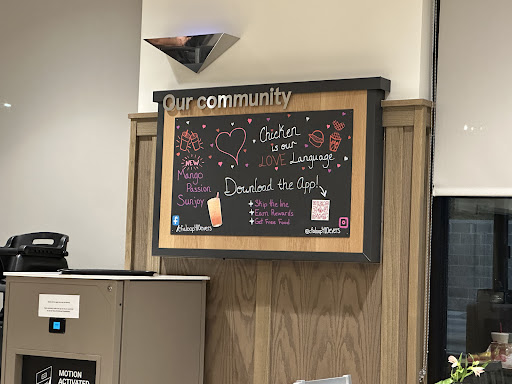 Our community
Chicken
is our
LOVE Language
NEW
Mango
Passion
Sunjoy
Download the App!
Skip the line
Earn Rewards
Get Free Food
MOTION
ACTIVATED